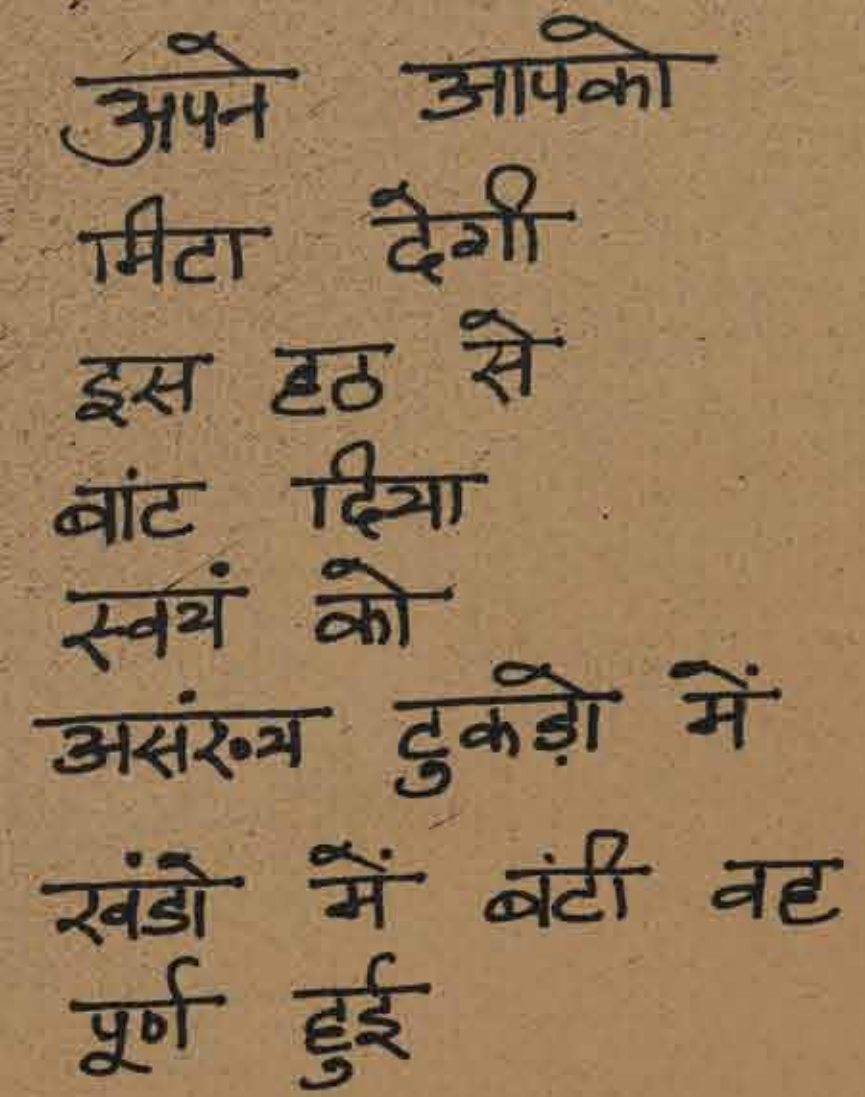 अपने आपको
मिटा देगी
इस हठ से
बांट दिया
स्वयं को
असंख्य टुकड़ो में
खंडो में बंटी वह
पूर्ण हुई